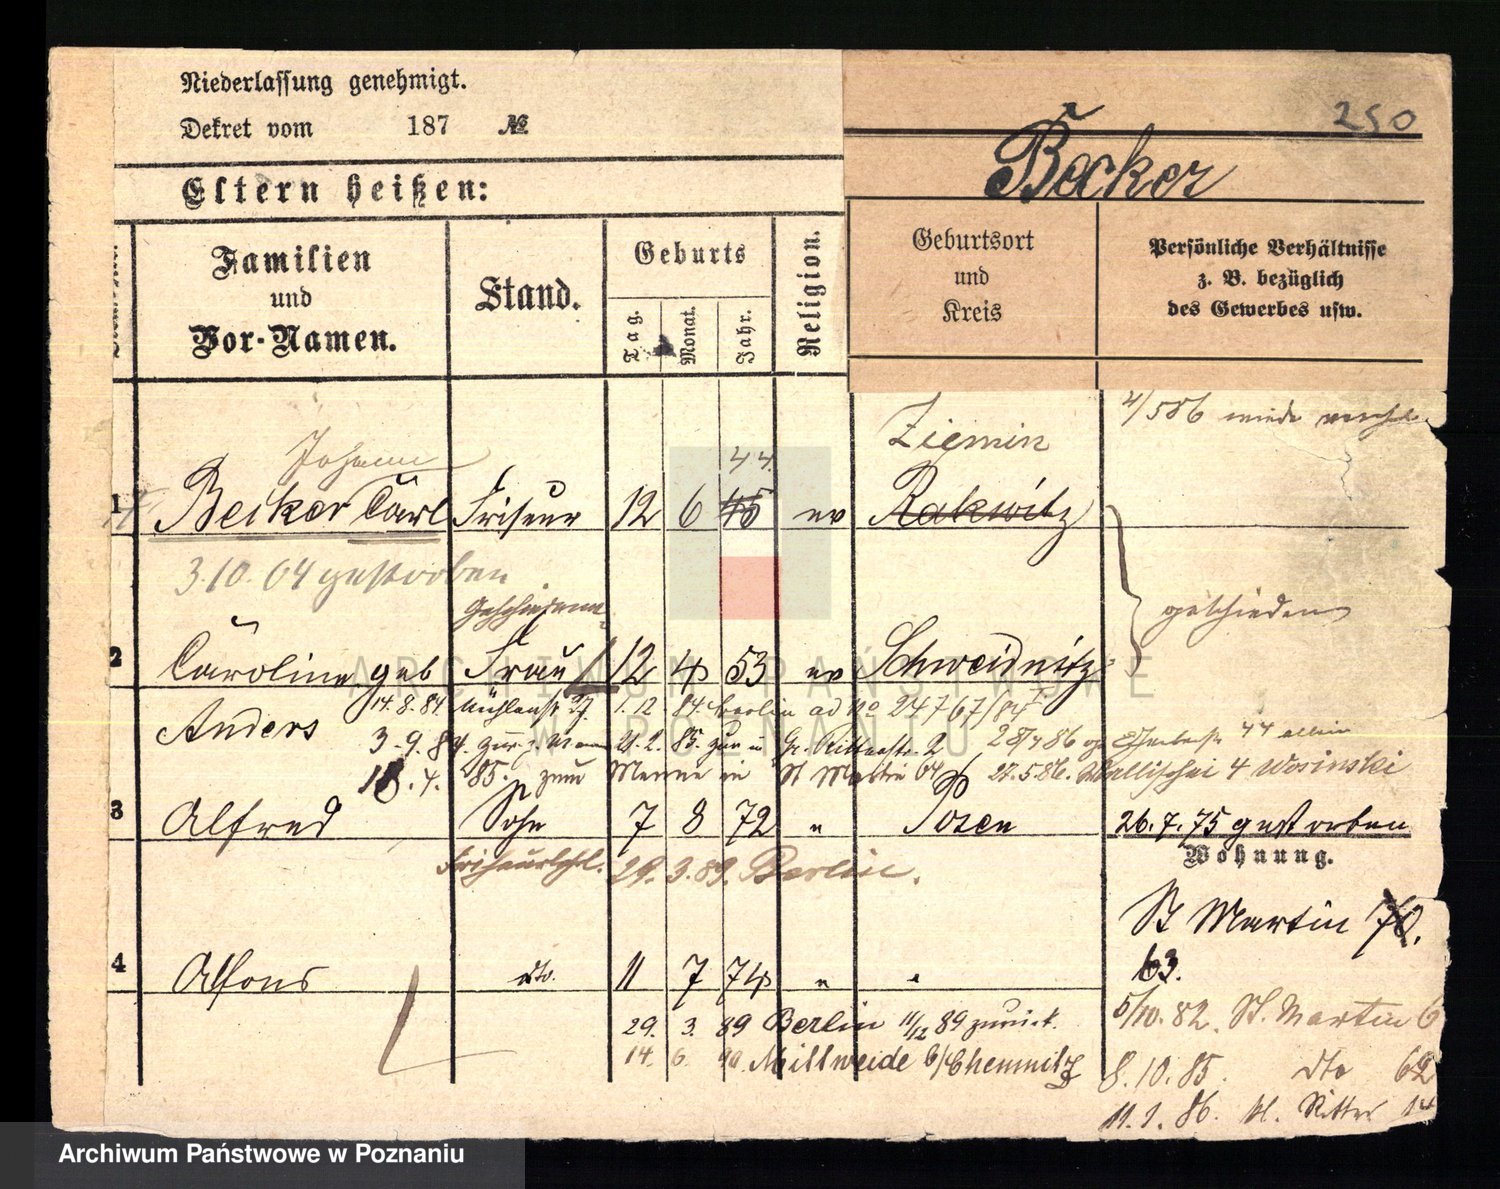 Niederlassung genehmigt.
Dekret vom 187 №
250
Becker
Eltern heißen:
Familien und Vor-Namen.
Stand.
Geburts
Tag.
Monat.
Jahr.
Religion.
Geburtsort und Kreis
Persönliche Verhältnisse z. B. bezüglich des Gewerbes usw.
Johann
44.
Ziemin
1 Becker Carl Friseur 12 6 45 ev Rakwitz
3.10.04 gestorben
geschieden
2 Caroline geb Frau 12 4 53 ev Schweidnitz
Anders
14.8.84. 1.12.84. Berlin ad No 24767/84
3.9.84. 21.2.85. Gr. Ritterstr. 2 28/4 86 44 allein
18.4.85. zum Manne in St Martin 64 27.5.86. Wallischei 4 Wosinski
3 Alfred Sohn 7 8 72 " Posen 26.7.75 gestorben
29.3.89. Berlin.
Wohnung.
St Martin 70.
63.
4 Alfons dto. 11 7 74 " "
5/10.82. St. Martin 6
29. 3. 89 Berlin 11/12 89 zurück.
14. 6. 90. Mittweide b/Chemnitz
8.10.85. dto 62
11.1.86. kl. Ritter 14
ARCHIWUM PAŃSTWOWE
W POZNANIU
Archiwum Państwowe w Poznaniu